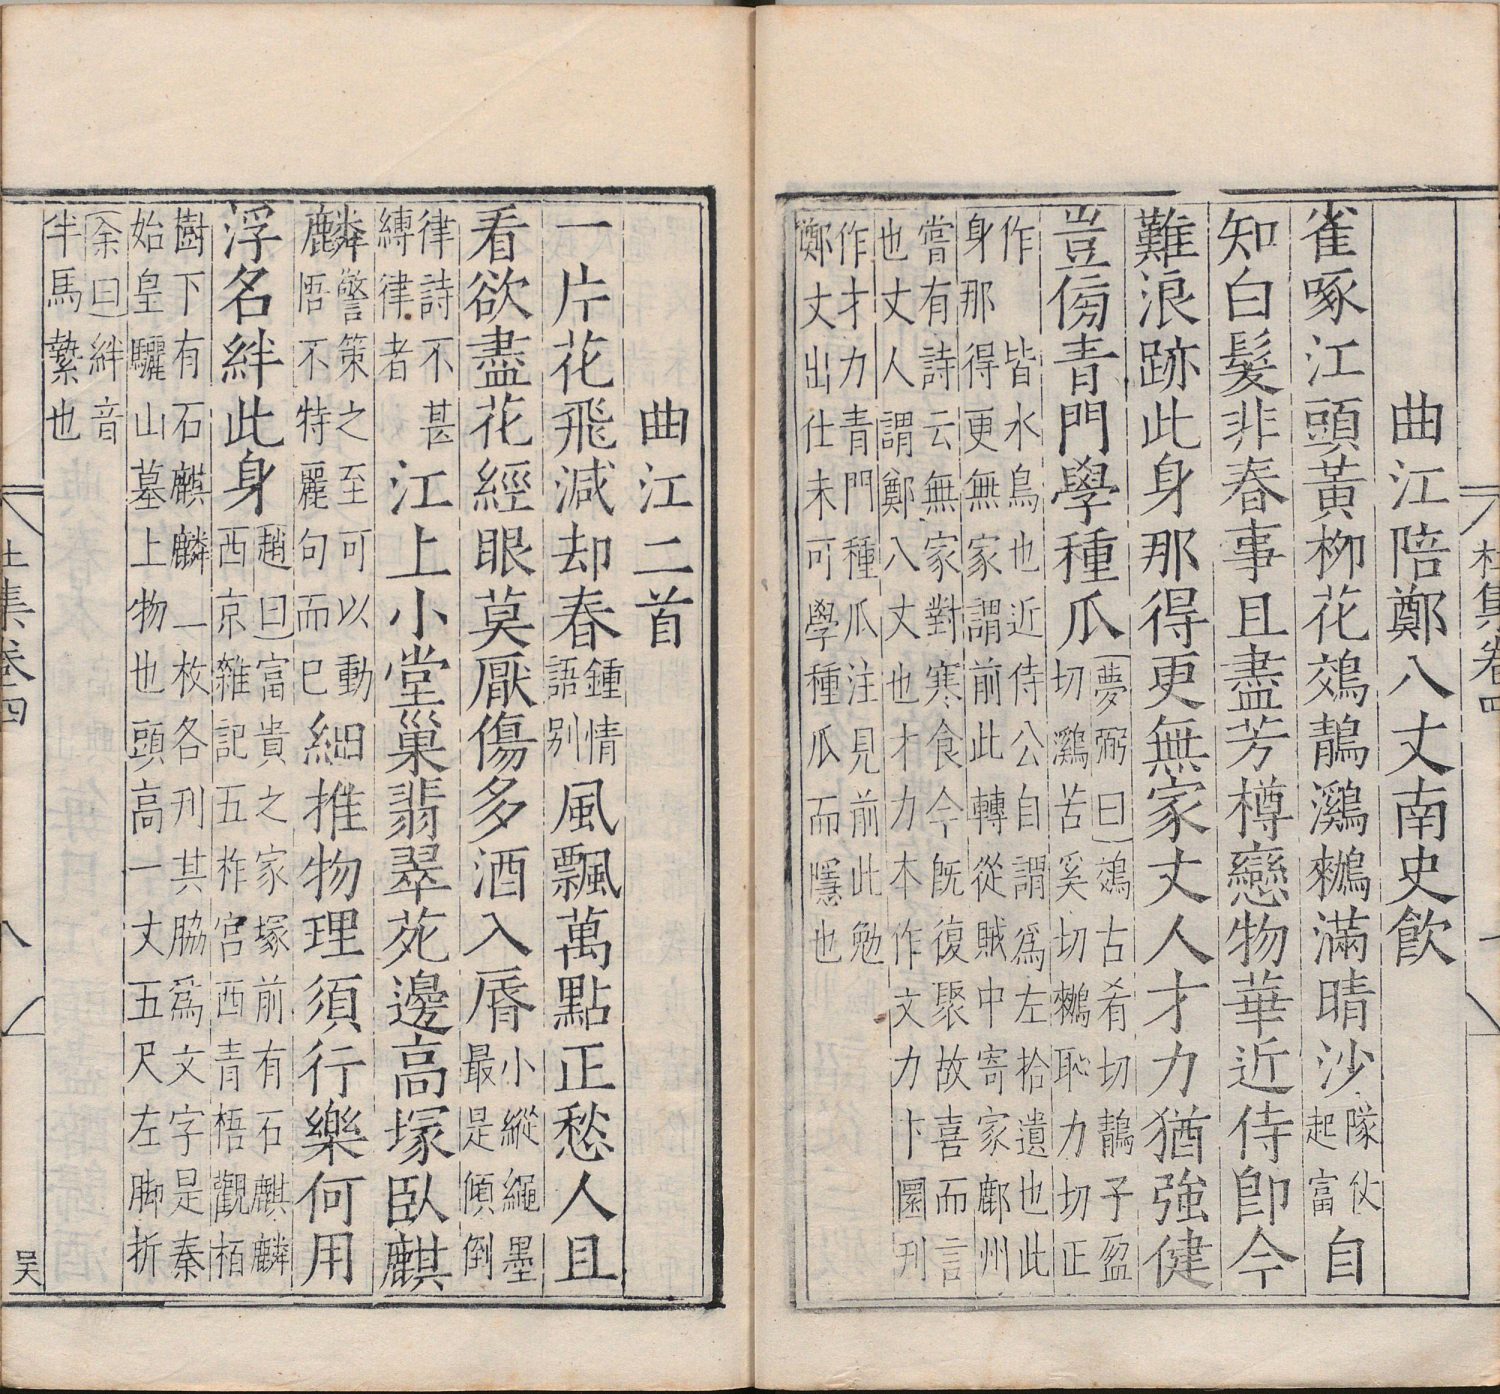 杜集卷四
曲江陪鄭八丈南史飲
雀啄江頭黃柳花鵁鶄鸂鶒滿晴沙隊仗起富自
知白髮非春事且盡芳樽戀物華近侍卽今
難浪跡此身那得更無家丈人才力猶強健
豈傍青門學種瓜
夢弼曰鵁古肴切鶄子盈
切鸂苦奚切鶒恥力切正
作 皆水鳥也近侍公自謂爲左拾遺也此
身那得更無家謂前此轉從賊中寄家鄜州
嘗有詩云無家對寒食今旣復聚故喜而言
也丈人謂鄭八丈也才力本作文力卞圜刋
作才力青門種瓜注見前此勉
鄭丈出仕未可學種瓜而隱也
曲江二首
一片花飛減却春鍾情語別風飄萬點正愁人且
看欲盡花經眼莫厭傷多酒入脣小縱繩墨最是傾倒
律詩不甚縛律者江上小堂巢翡翠苑邊高塚臥麒
麟警策之至可以動悟不特麗句而已細推物理須行樂何用
浮名絆此身
趙曰富貴之家塚前有石麒麟
西京雜記五柞宮西青梧觀栢
樹下有石麒麟一枚各刋其脇爲文字是秦
始皇驪山墓上物也頭高一丈五尺左脚折
余曰絆音
半馬縶也
杜集卷四
八
吳